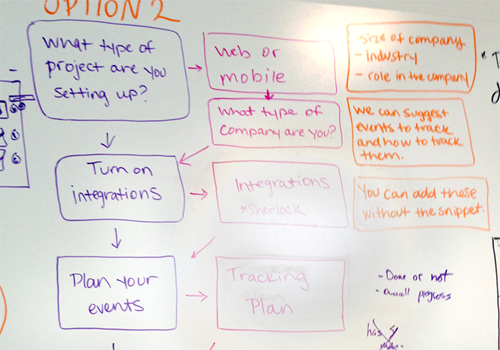 OPTION 2
What type of
project are you
setting up?
web or
mobile
size of company
- industry
- role in the company
What type of
Company are you?
We can suggest
events to track
and how to track
them.
Turn on
integrations
Integrations
*Sherlock
You can add these
without the snippet
Plan your
events
Tracking
Plan
- Done or not
- Overall progress